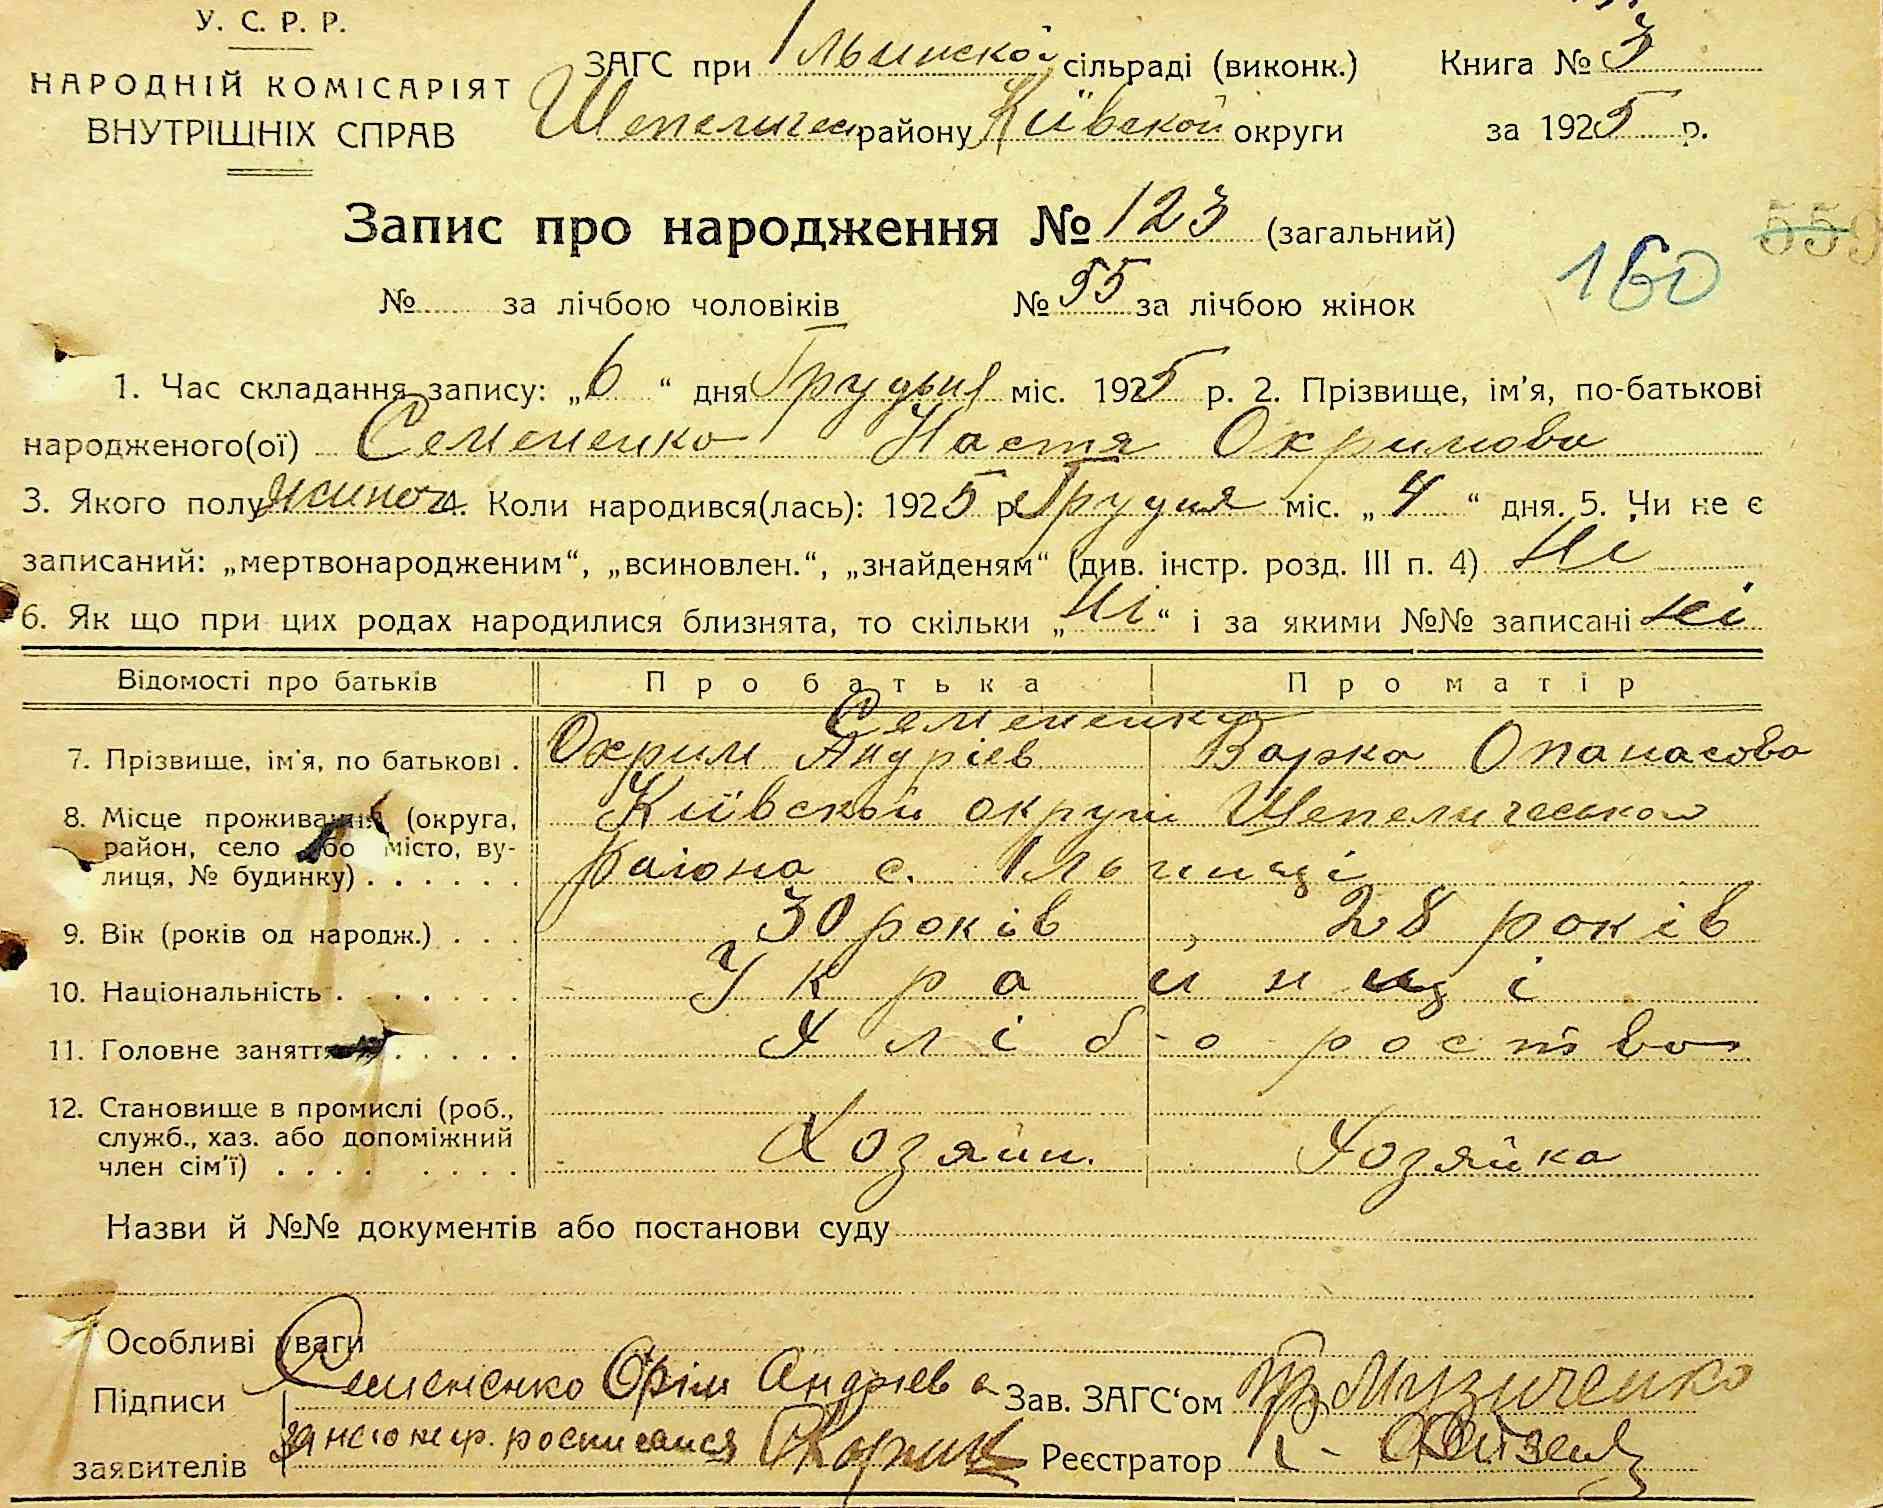 У. С. Р. Р.
НАРОДНІЙ КОМІСАРІЯТ
ВНУТРІШНІХ СПРАВ
ЗАГС при Ільинской сільраді (виконк.) Книга № 3
Шепеличес району Київской округи за 1925 р.
Запис про народження № 123 (загальний)
559
160
№ за лічбою чоловіків № 55 за лічбою жінок
1. Час складання запису: „6“ дня Грудня міс. 1925 р. 2. Прізвище, ім'я, по-батькові
народженого(ої) Семененко Настя Охримова
3. Якого полу жіноч 4. Коли народився(лась): 1925 р. Грудня міс. „4“ дня. 5. Чи не є
записаний: „мертвонародженим“, „всиновлен.“, „знайденям“ (див. інстр. розд. III п. 4) Ні
6. Як що при цих родах народилися близнята, то скільки „Ні“ і за якими №№ записані ні
Відомості про батьків Про батька Про матір
Семененки
7. Прізвище, ім'я, по батькові . Охрим Андріев Варка Опанасова
8. Місце проживання (округа, Київской округи Шепелическом
район, село або місто, ву-
лиця, № будинку) . . . . . . района с. Ільинці
9. Вік (років од народж.) . . . 30 років 28 років
10. Національність . . . . . . . Украинці
11. Головне заняття . . . . . Хлібороство
12. Становище в промислі (роб.,
служб., хаз. або допоміжний
член сім'ї) . . . . . . . . Хозяин. Хозяйка
Назви й №№ документів або постанови суду
Особливі уваги
Підписи Семененко Оріхм Андрієв а Зав. ЗАГС'ом Музиченко
заявителів росписался Реєстратор